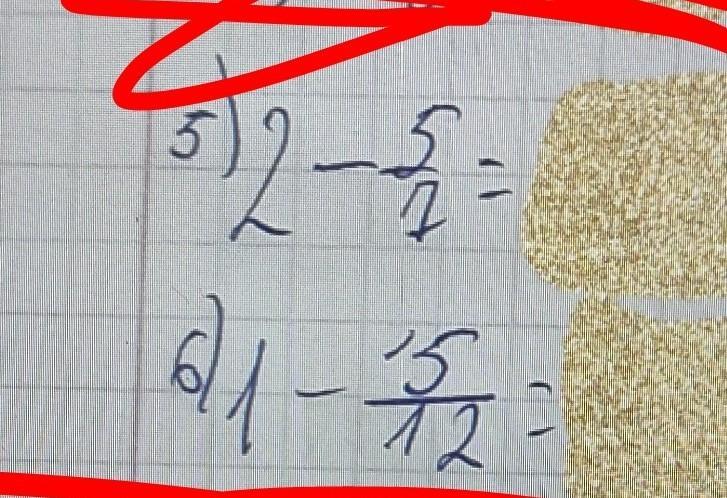 5) 2 - 5/7 =
6) 1 - 5/12 =